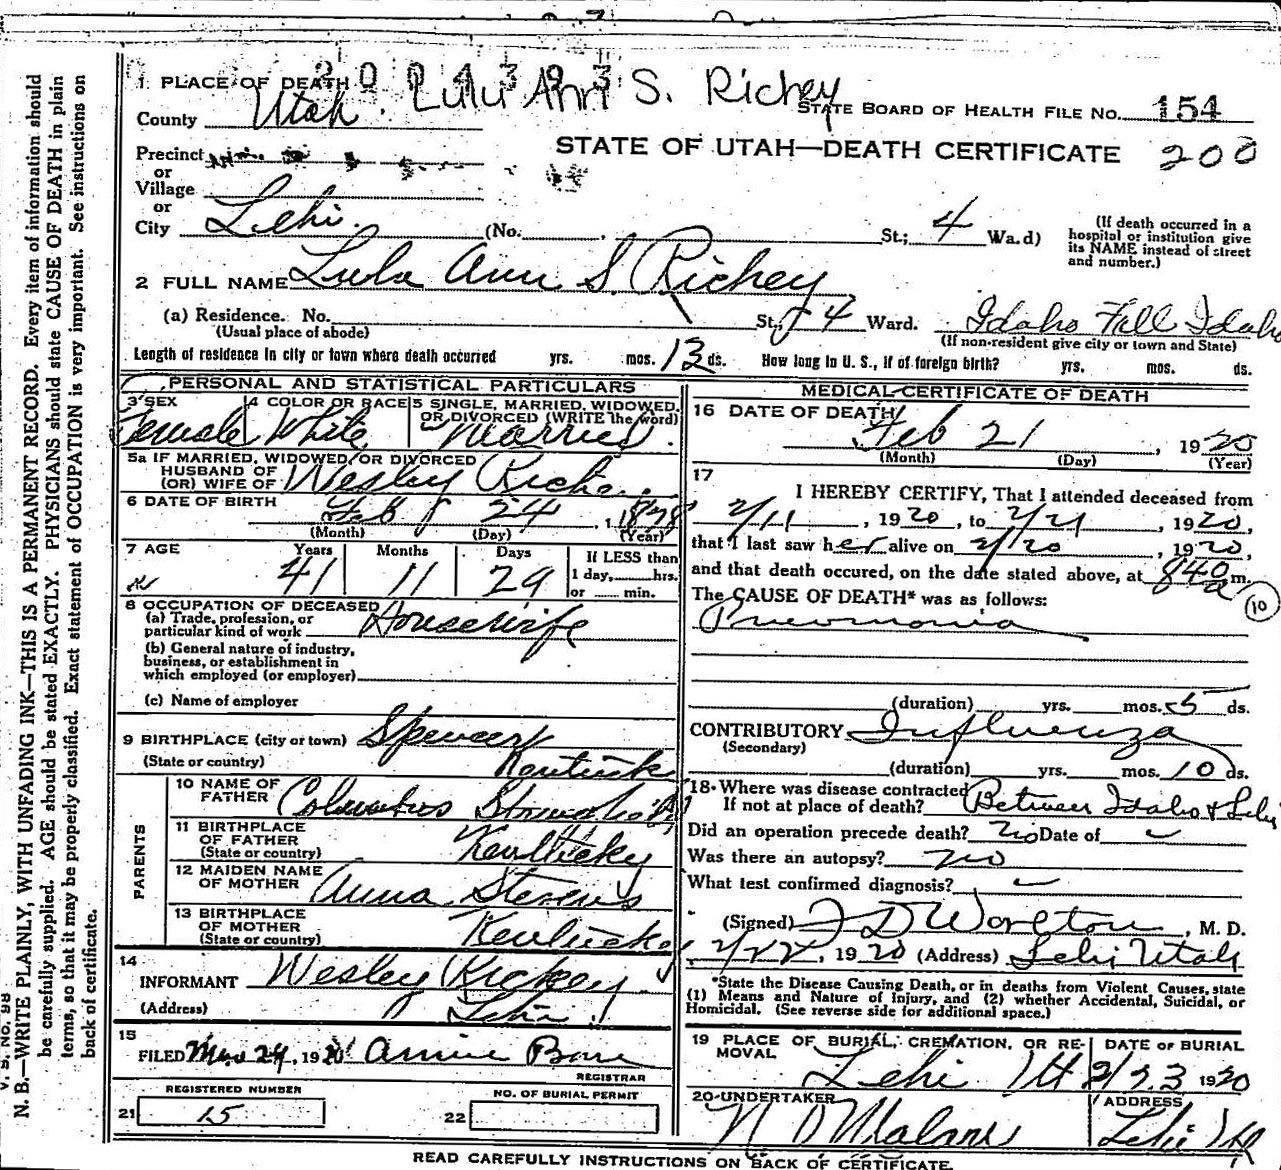 2004393
1 PLACE OF DEATH Lulu Ann S. Richey
County Utah. STATE BOARD OF HEALTH FILE NO. 154
STATE OF UTAH—DEATH CERTIFICATE 200
Precinct
or
Village
or
City Lehi (No. , St.; 4 Wa.d)
(If death occurred in a hospital or institution give its NAME instead of street and number.)
2 FULL NAME Lula Ann S. Richey
(a) Residence. No. St, 4 Ward. Idaho Fall Idaho
(Usual place of abode) (If non-resident give city or town and State)
Length of residence in city or town where death occurred yrs. mos. 13 ds. How long in U. S., if of foreign birth? yrs. mos. ds.
PERSONAL AND STATISTICAL PARTICULARS
3 SEX 4 COLOR OR RACE 5 SINGLE, MARRIED, WIDOWED,
OR DIVORCED (WRITE the word)
Female White Married.
5a IF MARRIED, WIDOWED, OR DIVORCED
HUSBAND OF
(OR) WIFE OF Wesley
6 DATE OF BIRTH Feb 24, 1878
(Month) (Day) (Year)
7 AGE Years Months Days If LESS than
41 11 29 1 day,......hrs.
or ...... min.
8 OCCUPATION OF DECEASED
(a) Trade, profession, or
particular kind of work Housewife
(b) General nature of industry,
business, or establishment in
which employed (or employer)
(c) Name of employer
9 BIRTHPLACE (city or town) Spencer
(State or country) Kentucky
PARENTS
10 NAME OF
FATHER Columbus
11 BIRTHPLACE
OF FATHER
(State or country) Kentucky
12 MAIDEN NAME
OF MOTHER Anna Stevens
13 BIRTHPLACE
OF MOTHER
(State or country) Kentucky
14
INFORMANT Wesley Richey
(Address) Lehi
15
FILED Mar 24, 1920 Annie
REGISTRAR
REGISTERED NUMBER NO. OF BURIAL PERMIT
21 15 22
MEDICAL CERTIFICATE OF DEATH
16 DATE OF DEATH
Feb 21, 1920
(Month) (Day) (Year)
17
I HEREBY CERTIFY, That I attended deceased from
2/11, 1920, to 2/21, 1920,
that I last saw her alive on 2/20, 1920,
and that death occured, on the date stated above, at 840 a m.
The CAUSE OF DEATH* was as follows: 10
Pneumonia
(duration) yrs. mos. 5 ds.
CONTRIBUTORY Influenza
(Secondary)
(duration) yrs. mos. 10 ds.
18 Where was disease contracted
If not at place of death? Between Idaho & Lehi
Did an operation precede death? No Date of
Was there an autopsy? no
What test confirmed diagnosis?
(Signed) , M. D.
2/22, 1920 (Address) Lehi Utah
*State the Disease Causing Death, or in deaths from Violent Causes, state
(1) Means and Nature of Injury, and (2) whether Accidental, Suicidal, or
Homicidal. (See reverse side for additional space.)
19 PLACE OF BURIAL, CREMATION, OR RE- DATE OF BURIAL
MOVAL Lehi Ut 2/23 1920
20 UNDERTAKER ADDRESS
Lehi Ut
READ CAREFULLY INSTRUCTIONS ON BACK OF CERTIFICATE.
V. S. No. 98
N. B.—WRITE PLAINLY, WITH UNFADING INK—THIS IS A PERMANENT RECORD. Every item of information should
be carefully supplied. AGE should be stated EXACTLY. PHYSICIANS should state CAUSE OF DEATH in plain
terms, so that it may be properly classified. Exact statement of OCCUPATION is very important. See instructions on
back of certificate.